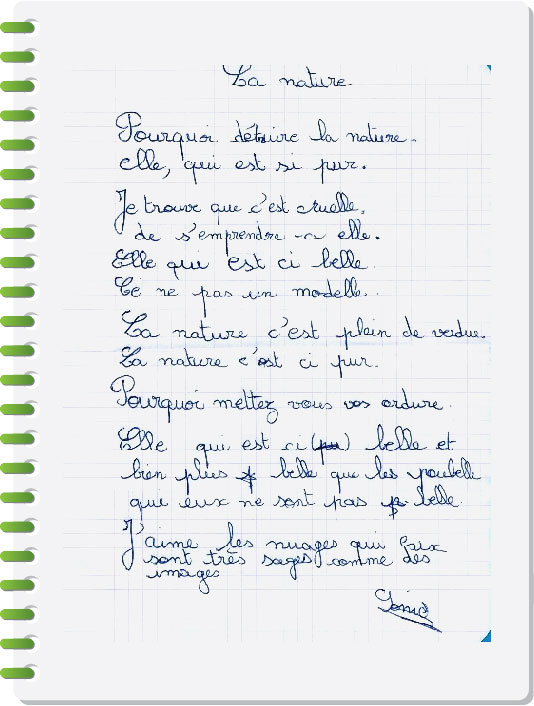 La nature.
Pourquoi détruire la nature.
elle, qui est si pur.
Je trouve que c'est cruelle,
de s'emprendre a elle.
Elle qui est ci belle
Ce ne pas un modelle.
La nature c'est plein de verdue.
La nature c'est ci pur.
Pourquoi mettez vous vos ordure.
Elle qui est ci belle et
bien plus belle que les poubelle
que eux ne sont pas belle
J'aime les nuages qui
sont très sages comme des
images